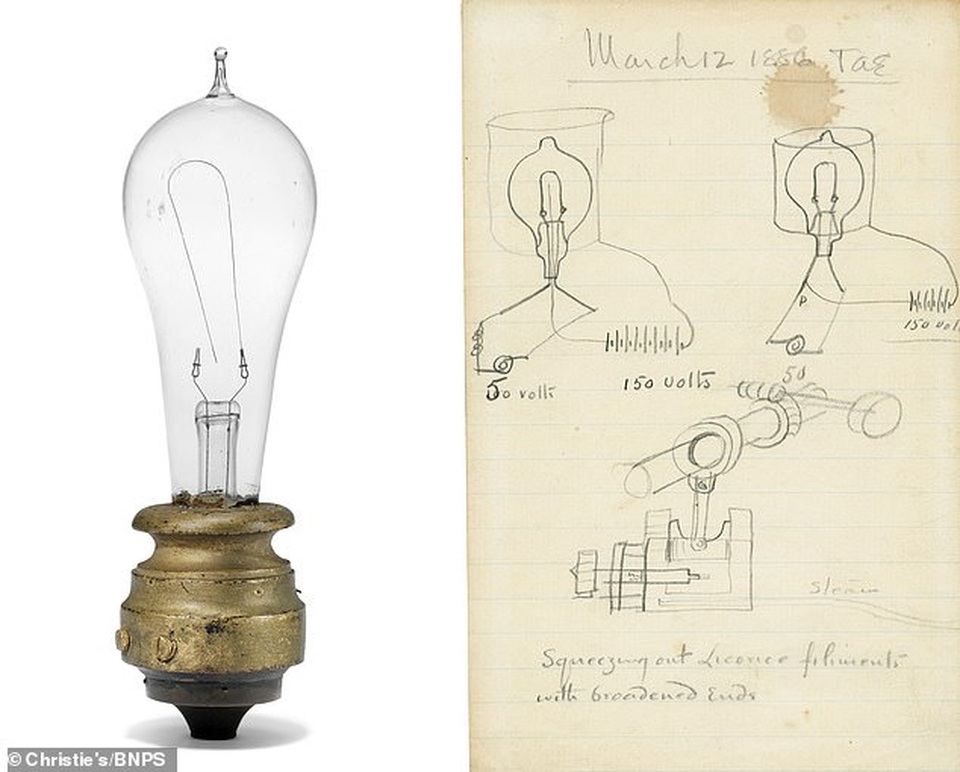 March 12 1886 TAE
50 volts
150 volts
P.
150 volt
50
Steam
Squeezing out Licorice filiments
with broadened Ends
© Christie's/BNPS